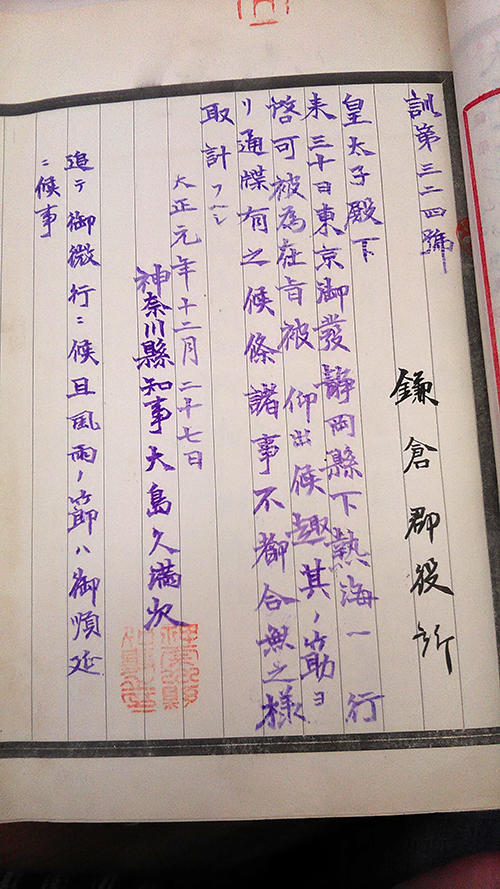 訓第三二四號
鎌倉郡役所
皇太子殿下
来三十日東京御發靜岡縣下熱海ヘ行
啓可被為在旨被仰出候趣其ノ筋ヨ
リ通牒有之候條諸事不都合無之様
取計フヘシ
大正元年十二月二十七日
神奈川縣知事大島久満次
追テ御微行ニ候且風雨ノ節ハ御順延
ニ候事